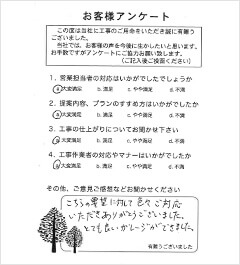 お客様アンケート
この度は当社に工事のご用命をいただき誠に有難う
ございました。
当社では、お客様の声を今後に生かしたいと思います。
お手数ですがアンケートにご協力お願い致します。
(ご記入後ご投函ください)
1. 営業担当者の対応はいかがでしたでしょうか
a 大変満足 b. 満足 c. やや満足 d. 不満
2. 提案内容、プランのすすめ方はいかがでしたか
a 大変満足 b. 満足 c. やや満足 d. 不満
3. 工事の仕上がりについてお聞かせ下さい
a 大変満足 b. 満足 c. やや満足 d. 不満
4. 工事作業者の対応やマナーはいかがでしたか
a 大変満足 b. 満足 c. やや満足 d. 不満
その他、ご意見ご感想などお聞かせください
こちらの要望に対して色々ご対応
いただきありがとうございました。
とても良いガレージができました。
有難うございました